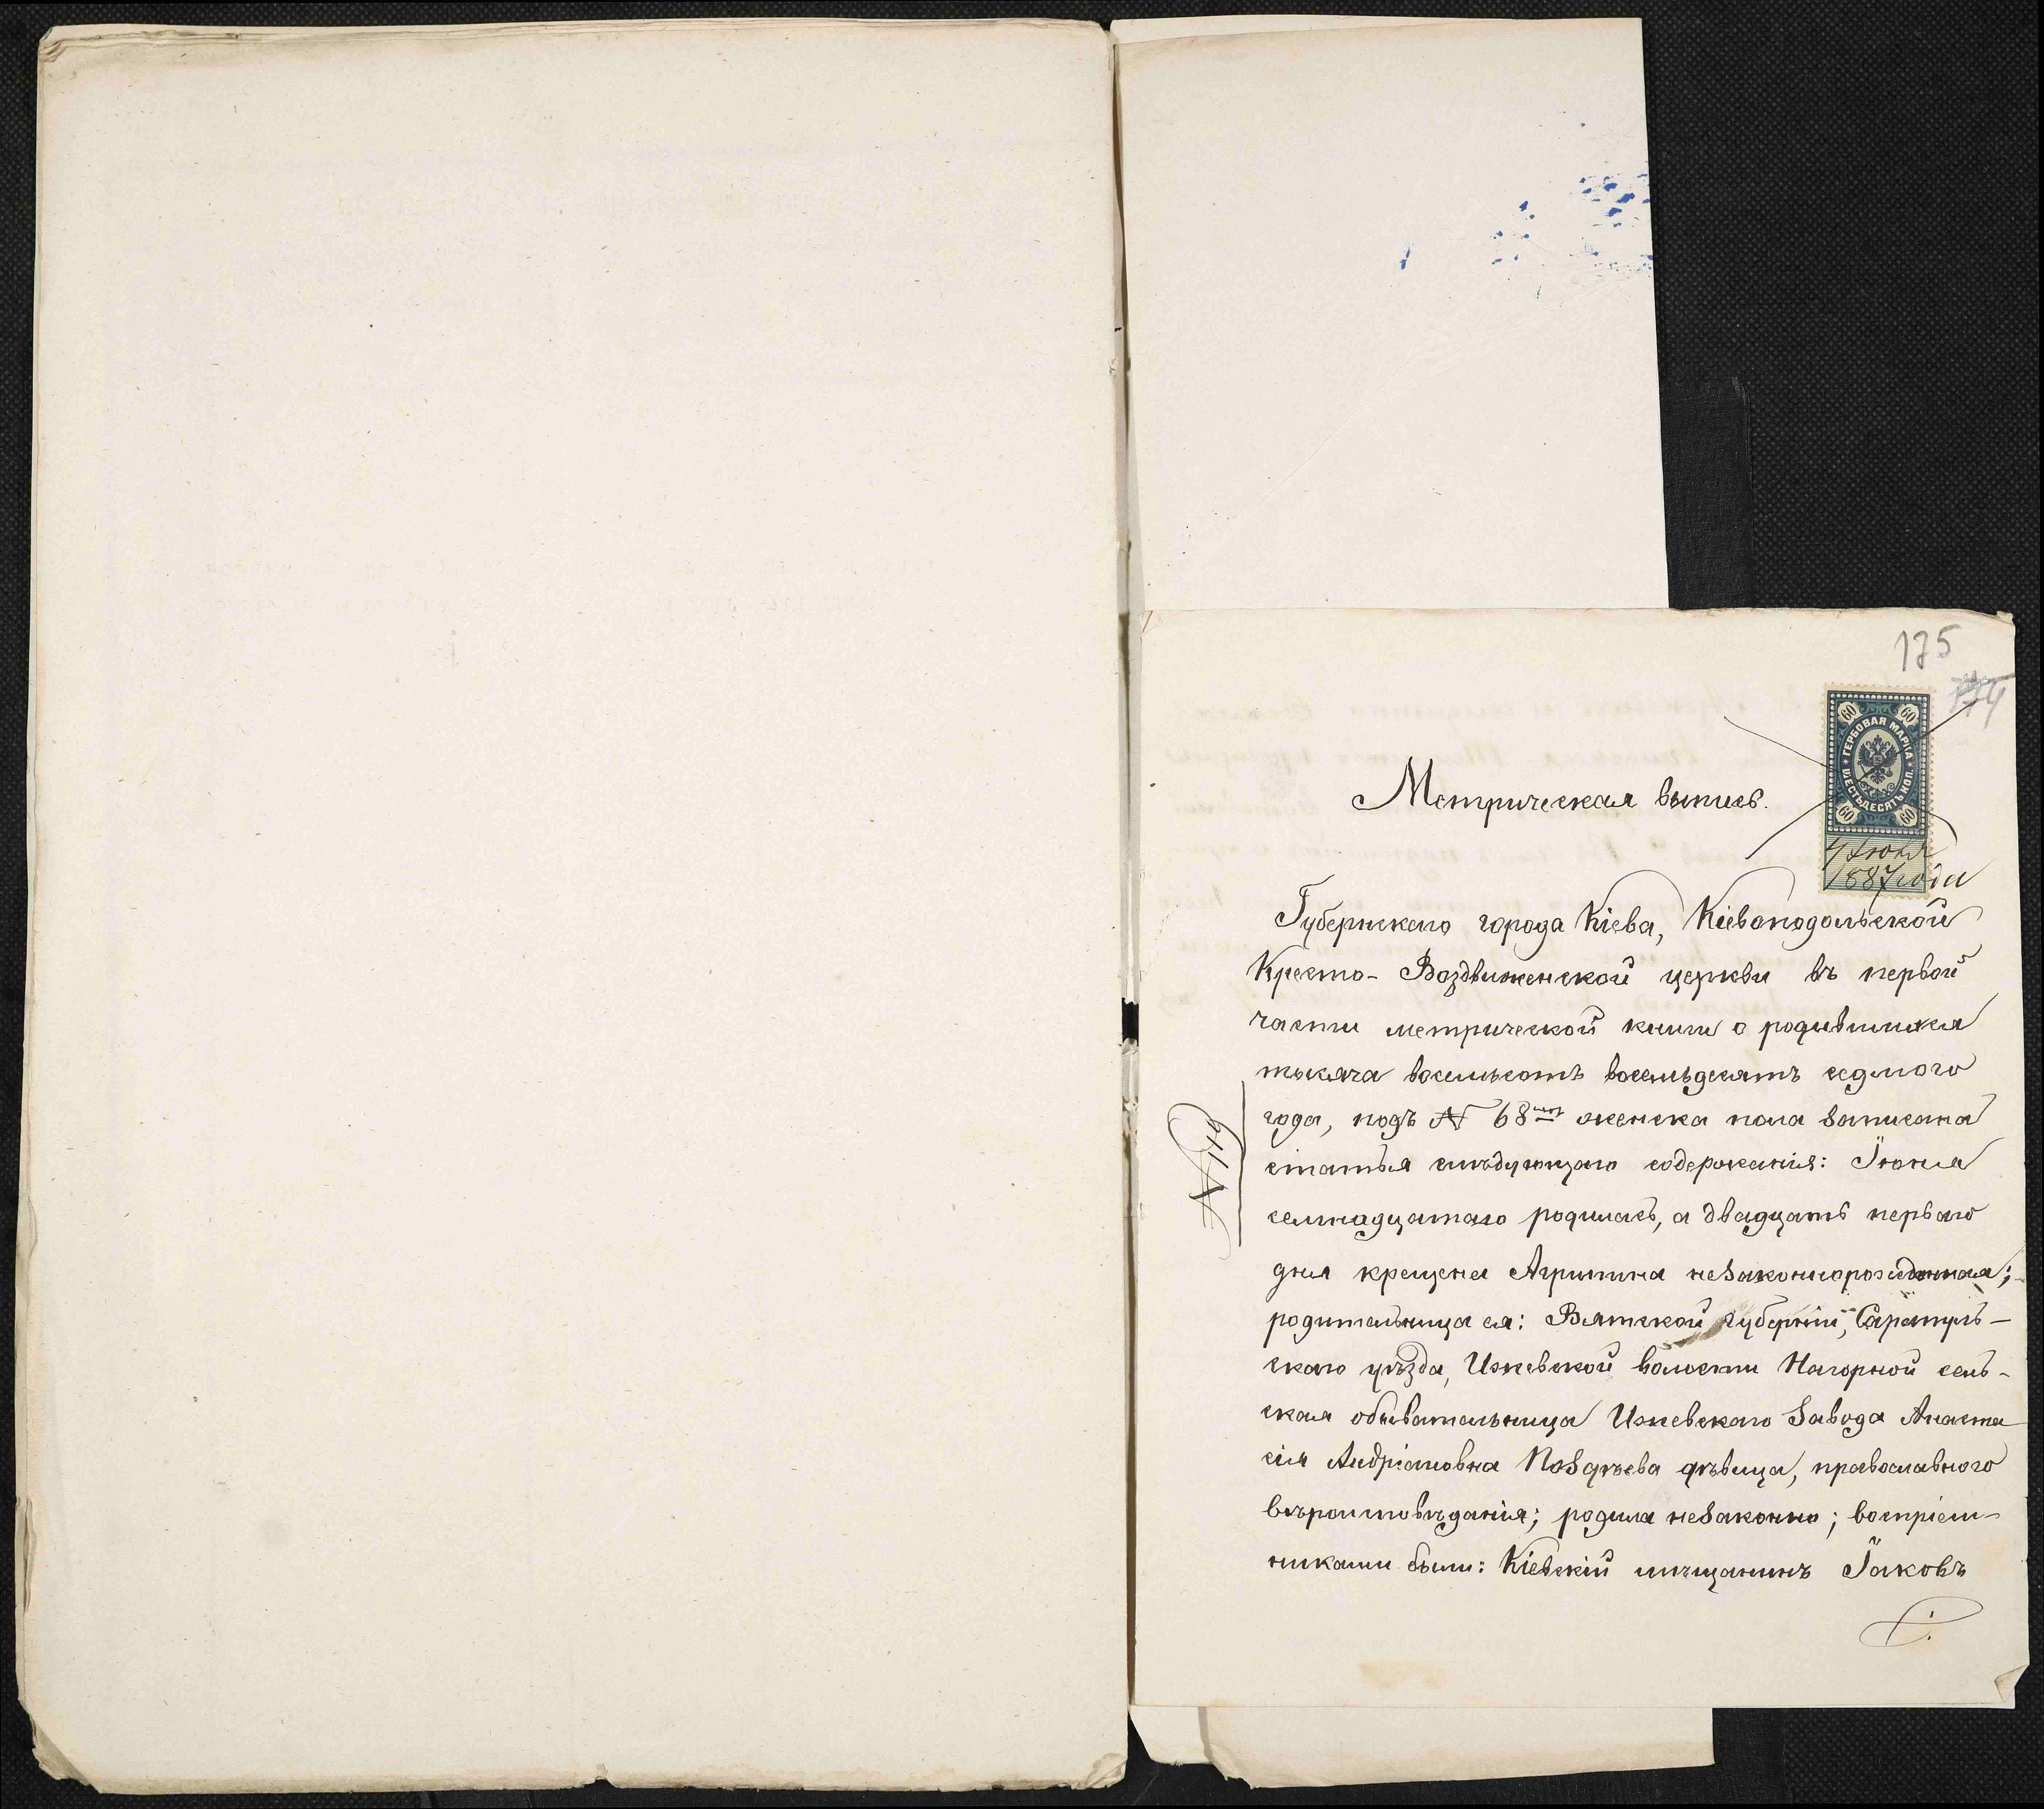 175
174
60 60
ГЕРБОВАЯ МАРКА
ШЕСТЬДЕСЯТЪ КОП.
60 60
Іюля
1887 года
Метрическая выпись.
Губернскаго города Кіева, Кіевоподольской
Кресто-Воздвиженской церкви въ первой
части метрической книги о родившихся
тысяча восемьсотъ восемьдесятъ седмого
года, подъ № 68мъ женска пола записана
статья слѣдующаго содержанія: Іюня
семнадцатаго родилась, а двадцать перваго
дня крещена Агрипина незаконнорожденная;
родительница ея: Вятской губерніи, Сарапуль-
скаго уѣзда, Ижевской волости Нагорной сель-
ская обывательница Ижевскаго Завода Анаста
сія Андріановна Поздѣева дѣвица, православного
вѣроисповѣданія; родила незаконно; воспріем-
никами были: Кіевскій мѣщанинъ Іаковъ